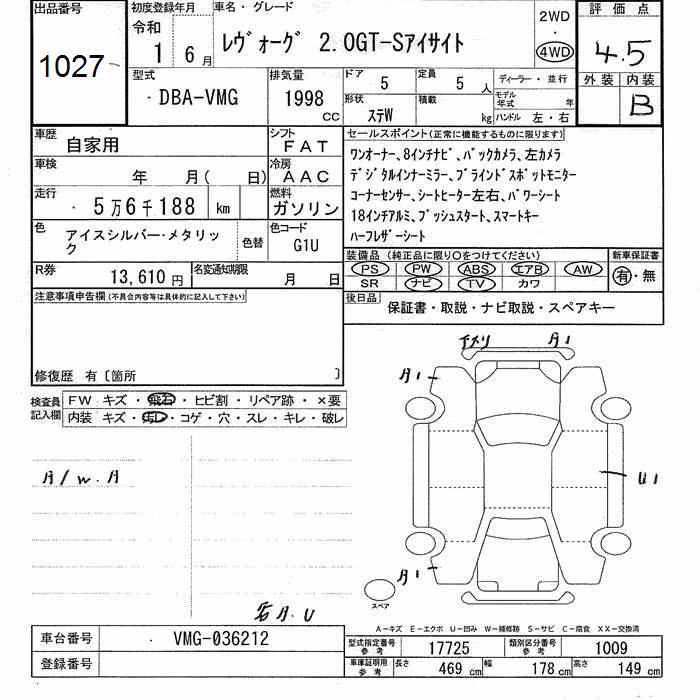 出品番号
1027
初度登録年月
令和
1 6月
車名・グレード
レヴォーグ 2.0GT-Sアイサイト
2WD
・
4WD
評価点
4.5
外装 内装
B
型式
DBA-VMG
排気量
1998
CC
ドア
5
定員
5 人
形状
ステW
積載
kg
ディーラー・並行
モデル年式 年
ハンドル 左・右
車歴
自家用
シフト
FAT
車検
年 月( 日)
冷房
AAC
走行
5万6千188 km
燃料
ガソリン
色
アイスシルバー・メタリック
色替
色コード
G1U
R券
13,610 円
名変通知期限
月 日
セールスポイント(正常に機能するものに限ります)
ワンオーナー、8インチナビ、バックカメラ、左カメラ
デジタルインナーミラー、ブラインドスポットモニター
コーナーセンサー、シートヒーター左右、パワーシート
18インチアルミ、プッシュスタート、スマートキー
ハーフレザーシート
装備品(純正品に限り○をつけてください)
PS PW ABS エアB AW
SR ナビ TV カワ
新車保証書
有・無
後日品
保証書・取説・ナビ取説・スペアキー
注意事項申告欄(不具合内容等は具体的に記入して下さい)
修復歴 有〔箇所 〕
検査員記入欄
FW キズ・飛石・ヒビ割・リペア跡・×要
内装 キズ・汚レ・コゲ・穴・スレ・キレ・破レ
A1
A1
U1
A1
A/W.A
スペア
A-キズ E-エクボ U-凹み W-補修跡 S-サビ C-腐食 XX-交換済
車台番号
VMG-036212
登録番号
型式指定番号
参考
17725
類別区分番号
参考
1009
車庫証明用
参考
長さ
469 cm
幅
178 cm
高さ
149 cm